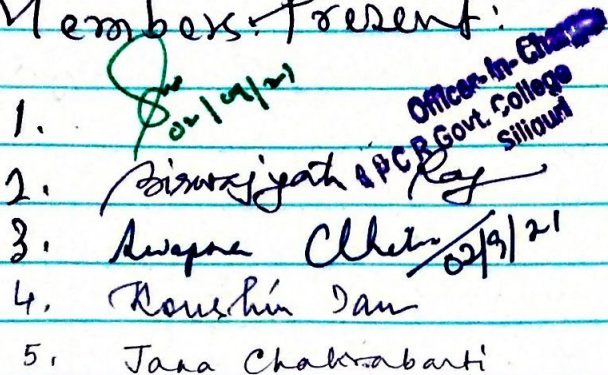 Members Present:
1. 02/09/21
Officer-In-Charge
APCR Govt. College
Siliguri
2. Biswajyoti Ray
3. Swapna Chhetri 02/9/21
4. Koushik Dam
5. Jana Chakrabarti